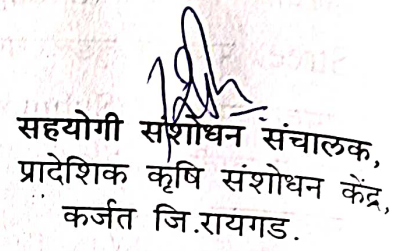 सहयोगी संशोधन संचालक,
प्रादेशिक कृषि संशोधन केंद्र,
कर्जत जि.रायगड.